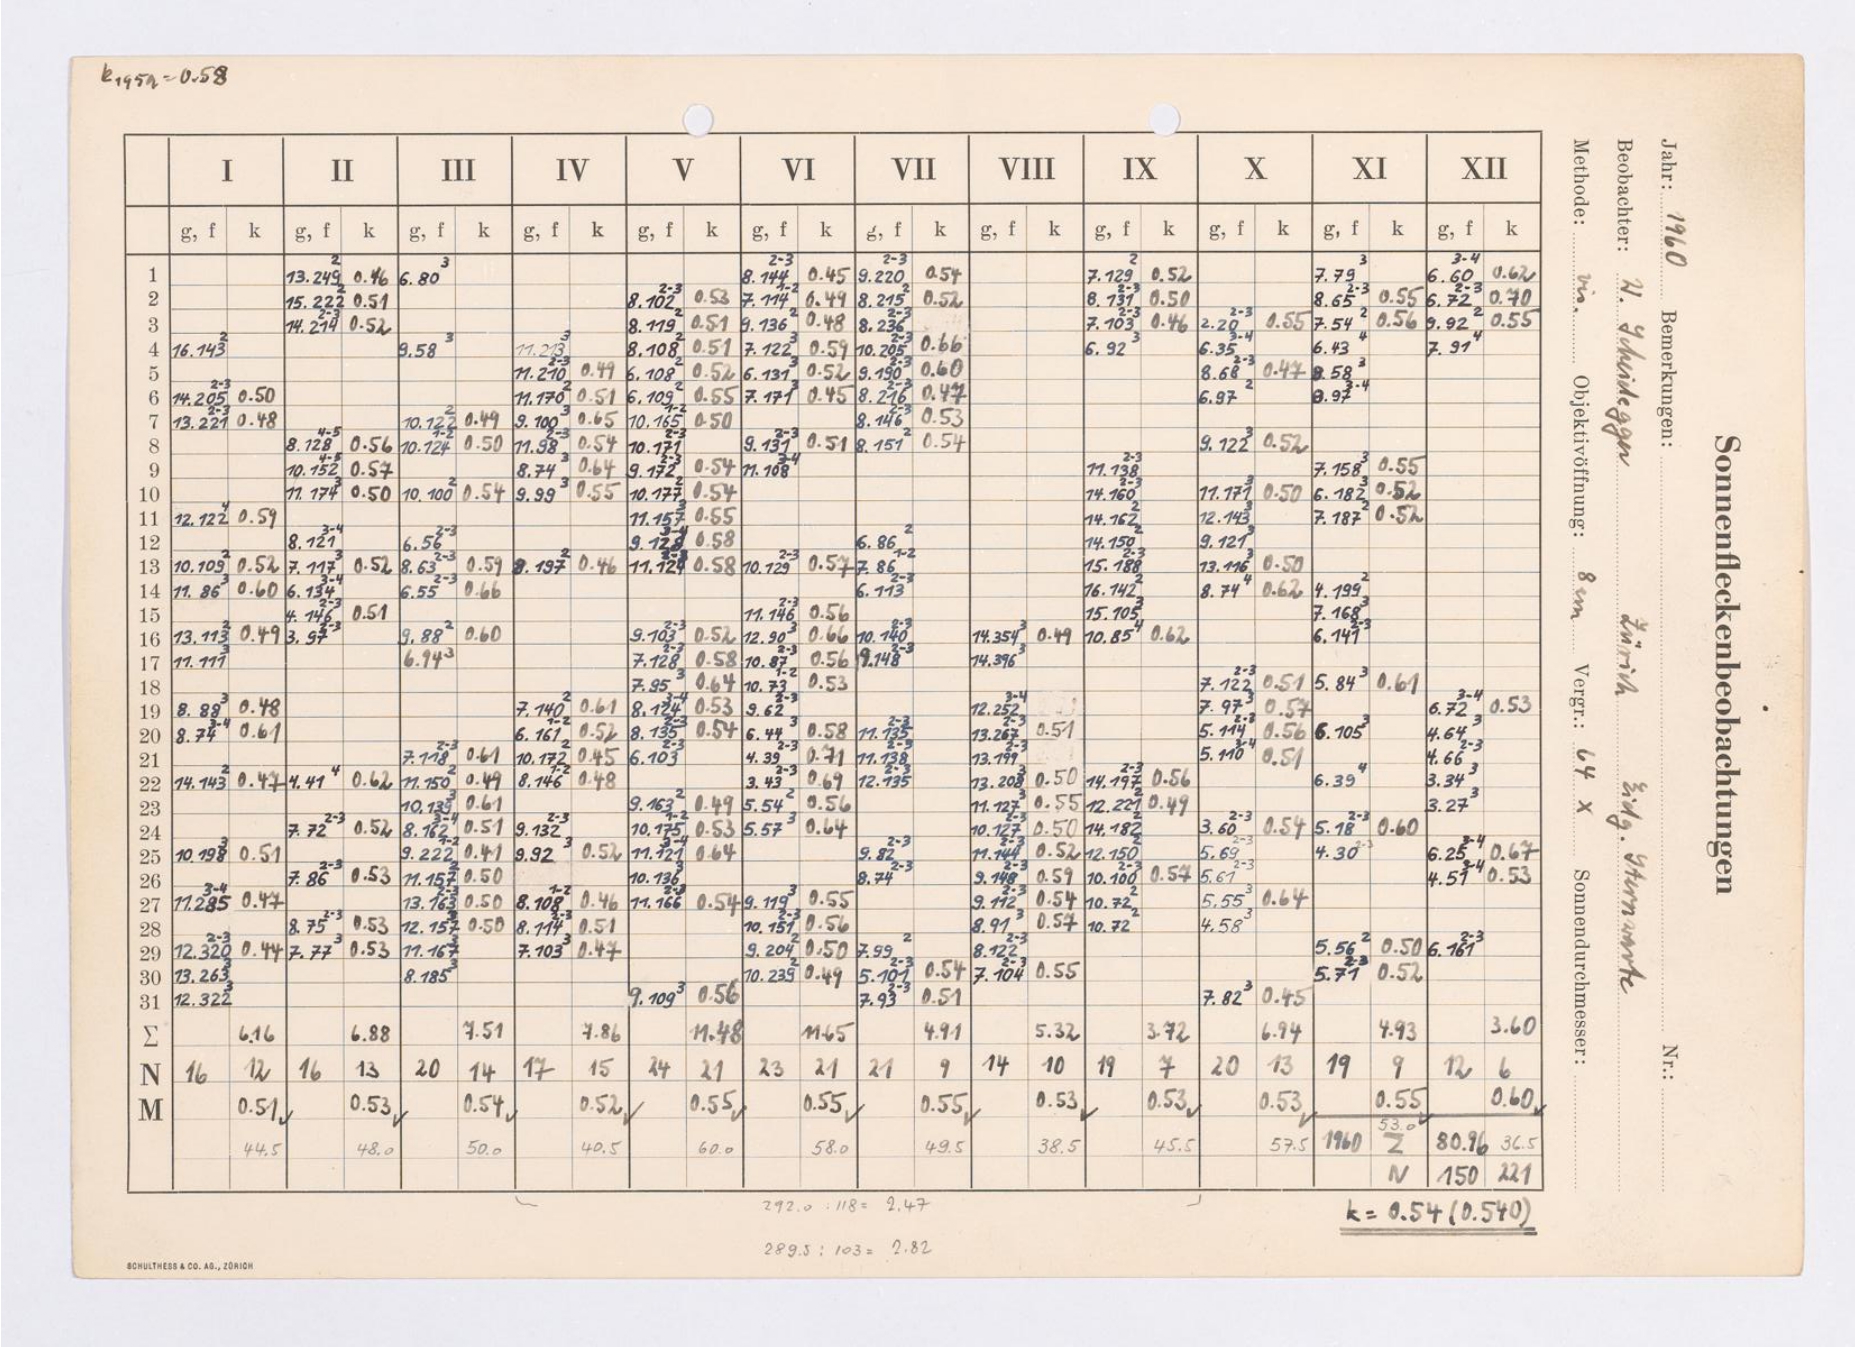 k1959 = 0.58
Sonnenfleckenbeobachtungen
Jahr: 1960 Bemerkungen: Nr.:
Beobachter: W. Scheidegger Zürich Eidg. Sternwarte
Methode: vis. Objektivöffnung: 8 cm Vergr.: 64 x Sonnendurchmesser:
I II III IV V VI VII VIII IX X XI XII
g, f k g, f k g, f k g, f k g, f k g, f k g, f k g, f k g, f k g, f k g, f k g, f k
1 13.249 2 0.46 6.80 3 8.144 2-3 0.45 9.220 2-3 0.54 7.129 2 0.52 7.79 3 6.60 3-4 0.62
2 15.222 2 0.51 8.102 2-3 0.53 7.114 1-2 0.49 8.215 2 0.52 8.131 2-3 0.50 8.65 2-3 0.55 6.72 2-3 0.70
3 14.214 2-3 0.52 8.119 2 0.51 9.136 2 0.48 8.236 2-3 7.103 2-3 0.46 2.20 2-3 0.55 7.54 2 0.56 9.92 2 0.55
4 16.143 2 9.58 3 11.213 3 8.108 2 0.51 7.122 2 0.59 10.205 2-3 0.66 6.92 3 6.35 3-4 6.43 4 7.91 4
5 11.210 2-3 0.49 6.108 2 0.52 6.131 3 0.52 9.190 2-3 0.60 8.68 2-3 0.47 8.58 3
6 14.205 2-3 0.50 11.170 2 0.51 6.109 2 0.55 7.171 3 0.45 8.216 2-3 0.47 6.97 2 8.97 3-4
7 13.221 2-3 0.48 10.122 2 0.49 9.100 3 0.65 10.165 1-2 0.50 8.146 2-3 0.53
8 8.128 4-5 0.56 10.124 1-2 0.50 11.98 2-3 0.54 10.171 2-3 9.131 2-3 0.51 8.151 2 0.54 9.122 3 0.52
9 10.152 4-5 0.57 8.74 3 0.64 9.172 2-3 0.54 11.108 3-4 11.138 2-3 7.158 3 0.55
10 11.174 3 0.50 10.100 2 0.54 9.99 3 0.55 10.177 2 0.54 14.160 2-3 11.171 2 0.50 6.182 3 0.52
11 12.122 4 0.59 11.157 3 0.55 14.162 2 12.143 3 7.187 2 0.52
12 8.121 3-4 6.56 2-3 9.128 3-4 0.58 6.86 2 14.150 2 9.121 3
13 10.109 2 0.52 7.117 3 0.52 8.63 2-3 0.59 8.197 2 0.46 11.124 2-3 0.58 10.129 2-3 0.57 7.86 1-2 15.188 2-3 13.116 3 0.50
14 11.86 3 0.60 6.134 3-4 6.55 2-3 0.66 6.113 2-3 16.142 2 8.74 4 0.62 4.199 2
15 4.146 2-3 0.51 11.146 2-3 0.56 15.105 3 7.168 3
16 13.113 2 0.49 3.97 2-3 9.88 2 0.60 9.103 2-3 0.52 12.90 3 0.66 10.140 2-3 14.354 3 0.49 10.85 4 0.62 6.141 2-3
17 11.111 3 6.94 3 7.128 3 0.58 10.87 2-3 0.56 9.148 2-3 14.396
18 7.95 3 0.64 10.73 1-2 0.53 7.122 2-3 0.51 5.84 3 0.61
19 8.88 3 0.48 7.140 2 0.61 8.124 3-4 0.53 9.62 2-3 12.252 3-4 7.97 3 0.57 6.72 3-4 0.53
20 8.74 3-4 0.61 6.161 1-2 0.52 8.135 2-3 0.54 6.44 3 0.58 11.135 2-3 13.267 2-3 0.51 5.114 2-3 0.56 6.105 3 4.64 3
21 7.118 2-3 0.61 10.172 2 0.45 6.103 2-3 4.39 2-3 0.71 11.138 2-3 13.199 2-3 5.110 3-4 0.51 4.66 2-3
22 14.143 2 0.47 4.41 4 0.62 11.150 2 0.49 8.146 1-2 0.48 3.43 2-3 0.69 12.135 2-3 13.208 3 0.50 14.197 2-3 0.56 6.39 4 3.34 3
23 10.139 3 0.61 9.163 2 0.49 5.54 2 0.56 11.127 3 0.55 12.221 2 0.49 3.27 3
24 7.72 2-3 0.52 8.162 3-4 0.51 9.132 2-3 10.175 1-2 0.53 5.57 3 0.64 10.127 2-3 0.50 14.182 2 3.60 2-3 0.54 5.18 2-3 0.60
25 10.198 3 0.51 9.222 1-2 0.41 9.92 3 0.52 11.121 3-4 0.64 9.82 2-3 11.144 2-3 0.52 12.150 2 5.69 2-3 4.30 2-3 6.25 3-4 0.67
26 7.86 2-3 0.53 11.157 2 0.50 10.136 3 8.74 2-3 9.148 3 0.59 10.100 2-3 0.57 5.61 2-3 4.51 3-4 0.53
27 11.285 3-4 0.47 13.163 2-3 0.50 8.108 1-2 0.46 11.166 2-3 0.54 9.119 3 0.55 9.112 2-3 0.54 10.72 2 5.55 3 0.64
28 8.75 2-3 0.53 12.157 3 0.50 8.114 2-3 0.51 10.151 2-3 0.56 8.91 3 0.57 10.72 2 4.58 3
29 12.320 2-3 0.44 7.77 3 0.53 11.167 3 7.103 3 0.47 9.204 2 0.50 7.99 2 8.122 2-3 5.56 2 0.50 6.161 2-3
30 13.263 3 8.185 3 10.239 2 0.49 5.101 2-3 0.54 7.104 3 0.55 5.71 2-3 0.52
31 12.322 3 9.109 3 0.56 7.93 2-3 0.51 7.82 3 0.45
Σ 6.16 6.88 7.51 7.86 11.48 11.65 4.91 5.32 3.72 6.94 4.93 3.60
N 16 12 16 13 20 14 17 15 24 21 23 21 21 9 14 10 19 7 20 13 19 9 12 6
M 0.51 0.53 0.54 0.52 0.55 0.55 0.55 0.53 0.53 0.53 0.55 0.60
44.5 48.0 50.0 40.5 60.0 58.0 49.5 38.5 45.5 57.5 53.0 36.5
1960 Σ 80.96
N 150 221
292.0 : 118 = 2.47
k = 0.54 (0.540)
289.5 : 103 = 2.82
SCHULTHESS & CO. AG., ZÜRICH